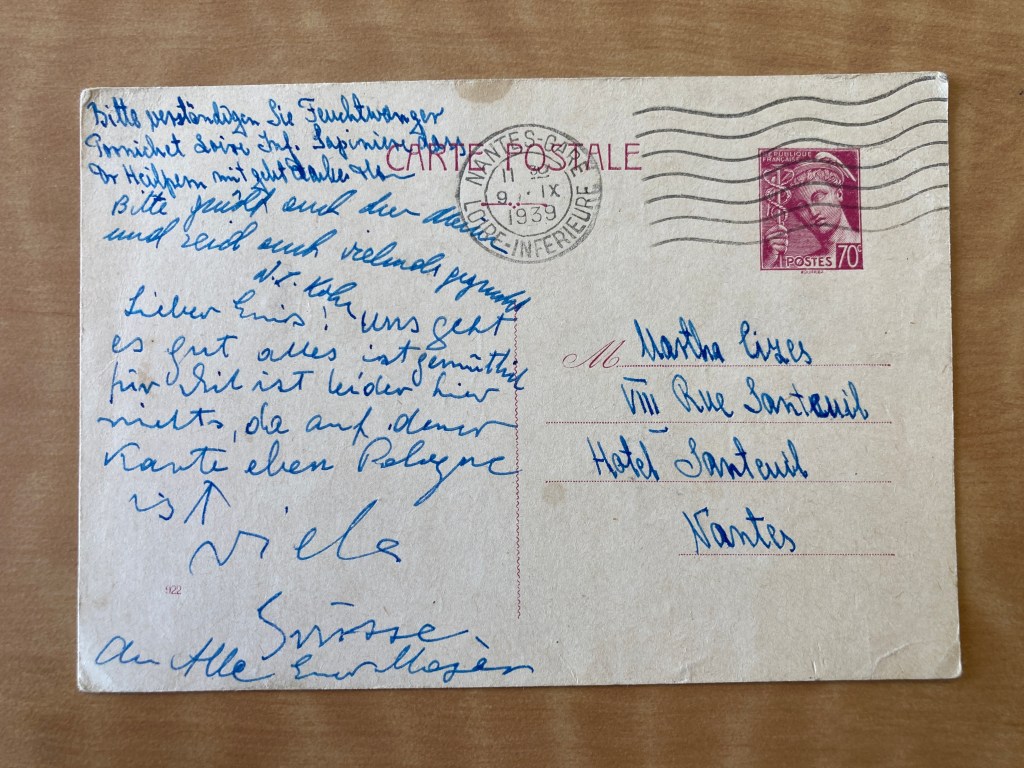 Bitte verständigen Sie Feuchtwanger
Pornichet Loire Inf. Sapiniere dass
Dr Heilpern mit geht
Bitte grüßt auch den
und seid auch vielmals gegrüsst
Lieber ! Uns geht
es gut alles ist gemütlich
für ist leider hier
nichts, da auf deiner
Karte eben Pologne
ist ↑
viele
Grüsse
An Alle Euer
922
CARTE POSTALE
NANTES-GARE
11
9. IX
1939
LOIRE-INFERIEURE
REPUBLIQUE
FRANÇAISE
POSTES 70c
M Martha Cizes
VIII Rue Santeuil
Hotel Santeuil
Nantes